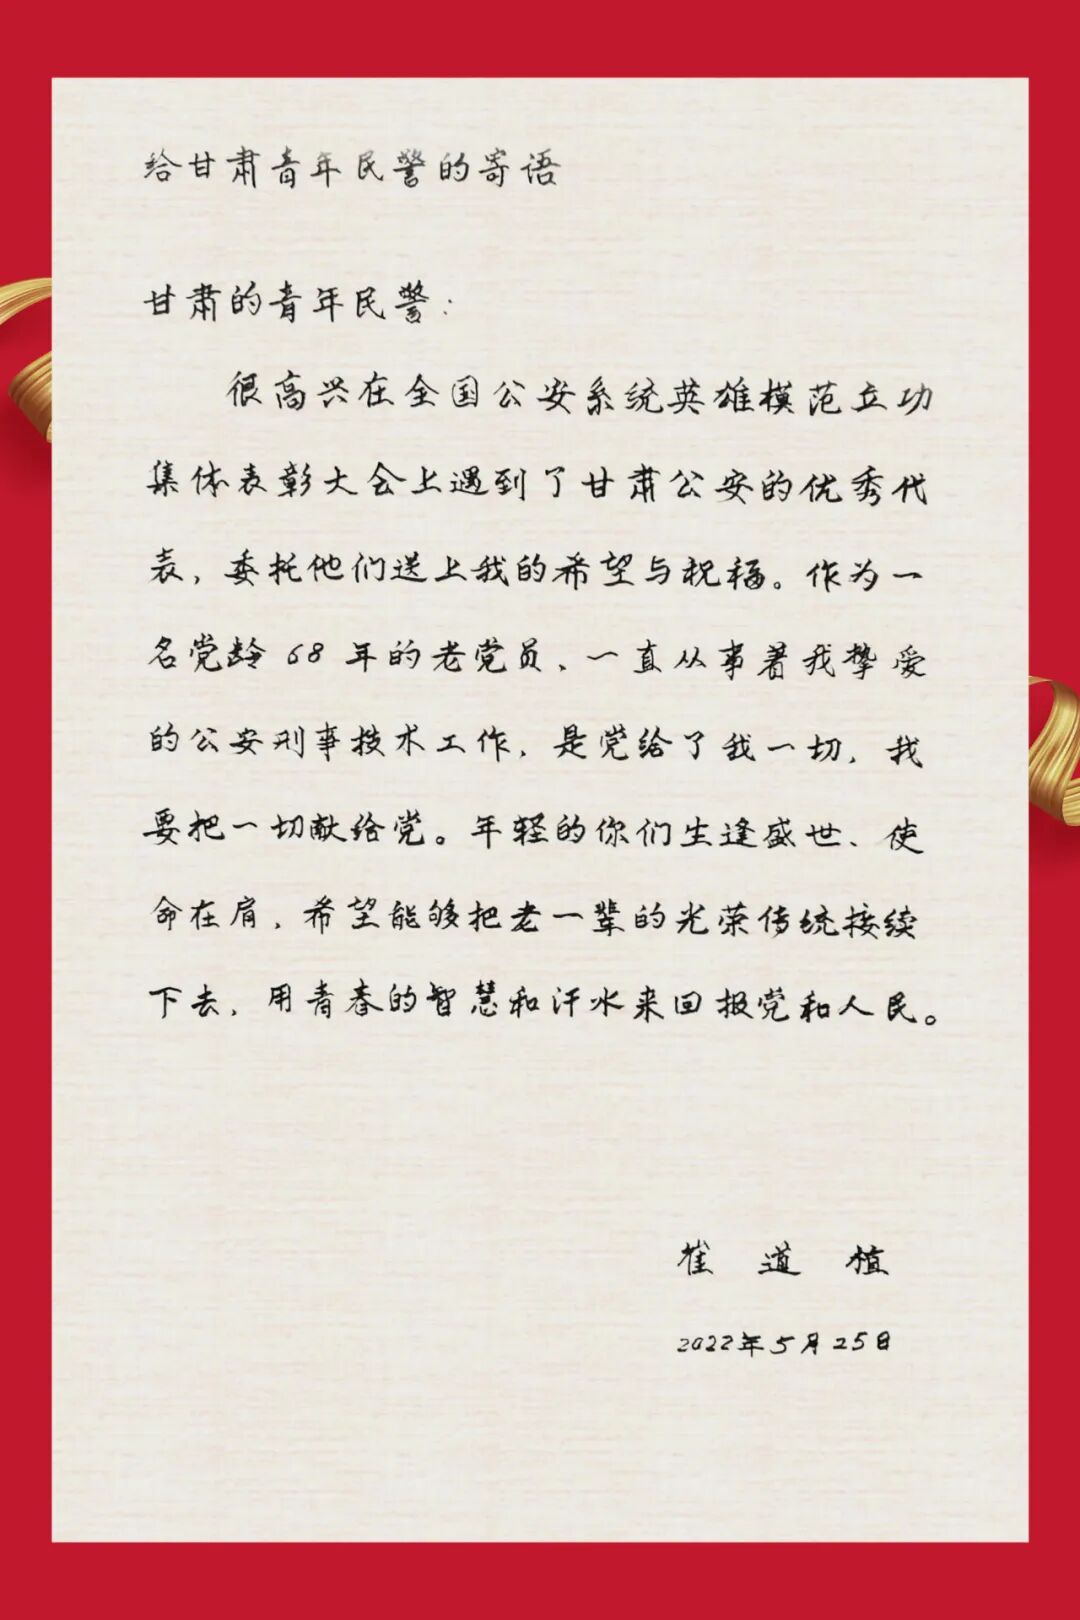 给甘肃青年民警的寄语
甘肃的青年民警：
很高兴在全国公安系统英雄模范立功
集体表彰大会上遇到了甘肃公安的优秀代
表，委托他们送上我的希望与祝福。作为一
名党龄68年的老党员、一直从事着我挚爱
的公安刑事技术工作，是党给了我一切，我
要把一切献给党。年轻的你们生逢盛世、使
命在肩，希望能够把老一辈的光荣传统接续
下去，用青春的智慧和汗水来回报党和人民。
崔道植
2022年5月25日